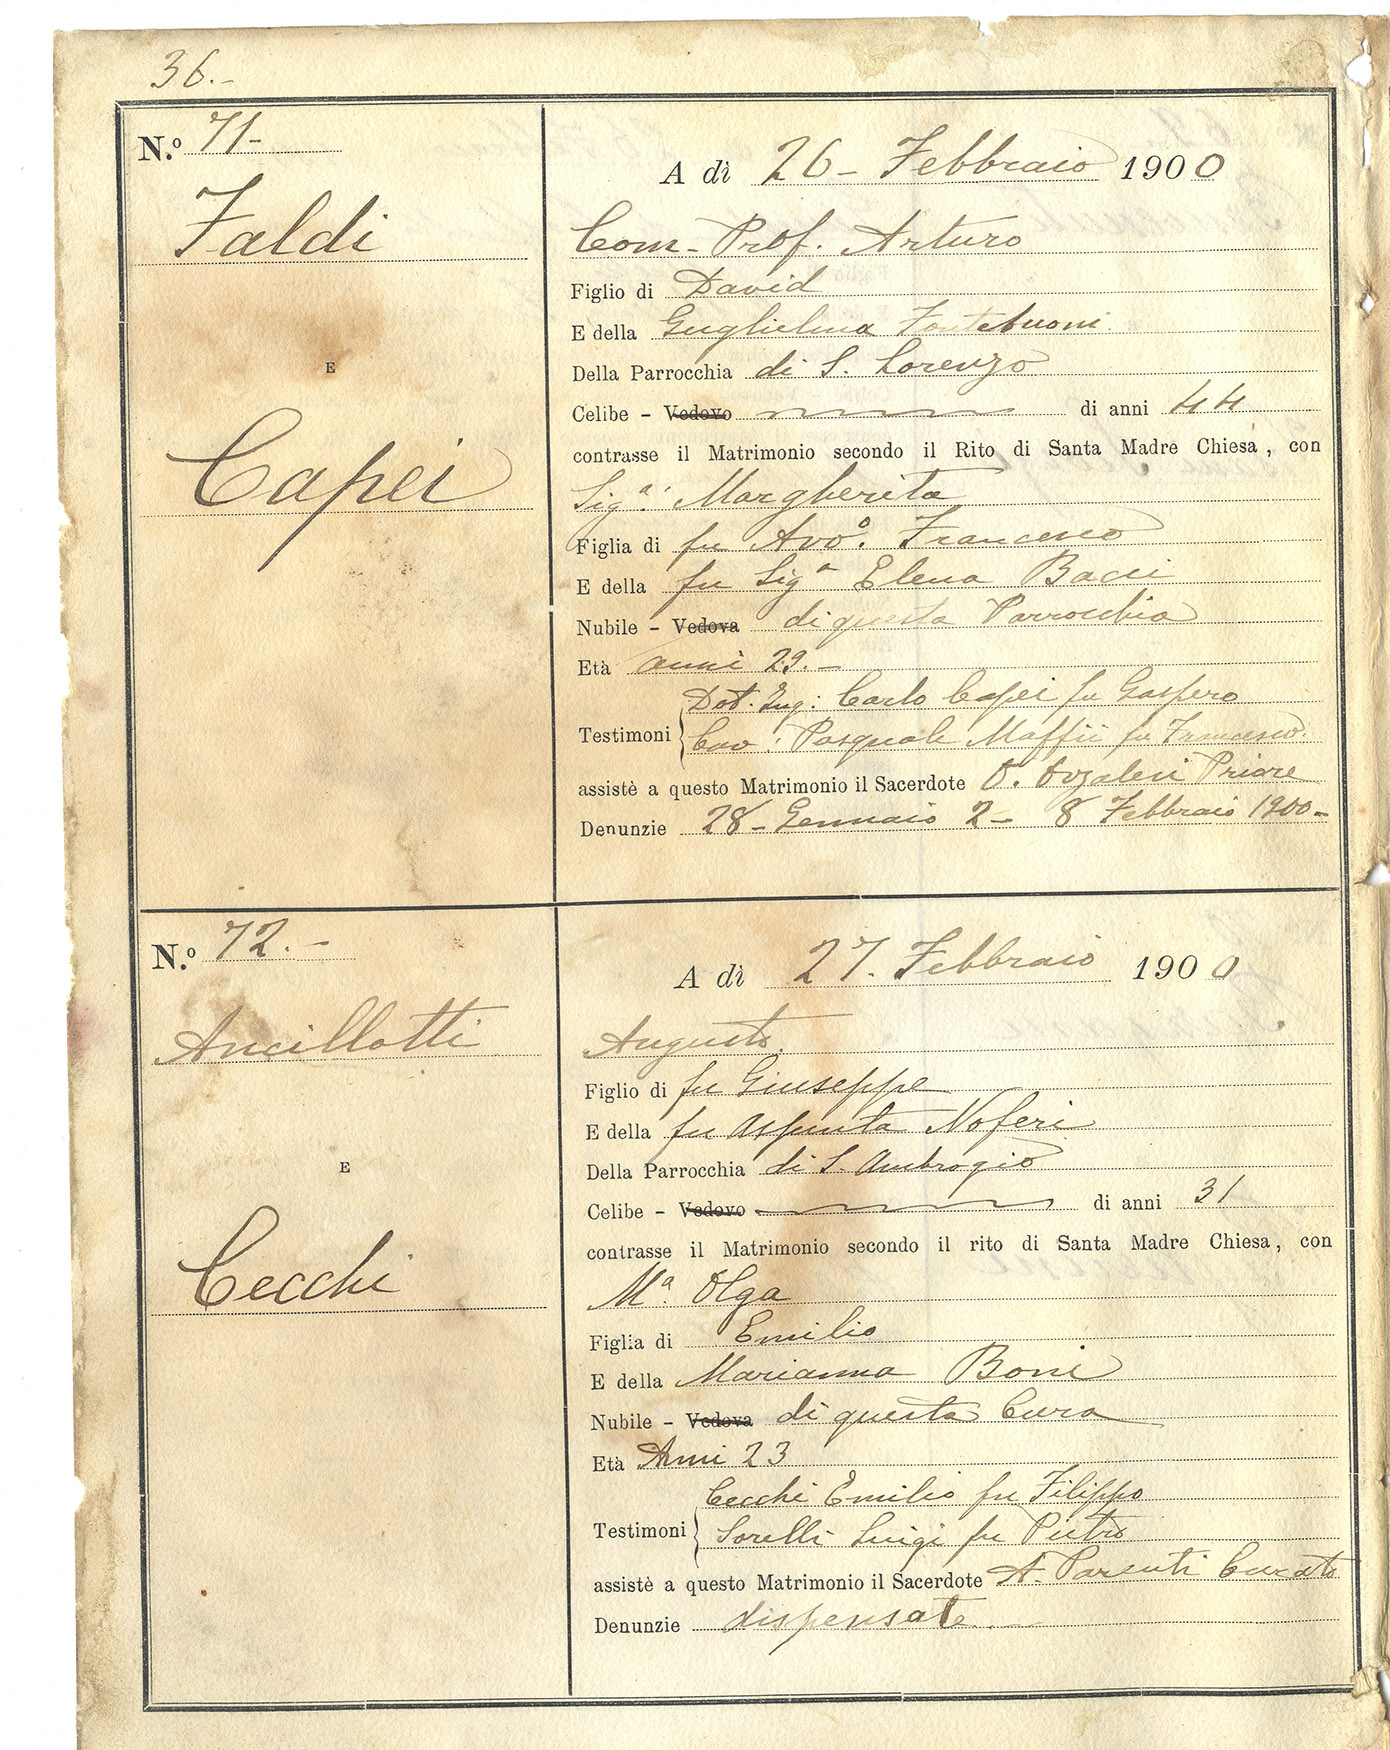 36.-
N.º 71-
Faldi
E
Capei
A dì 26 - Febbraio 1900
Com. Prof. Arturo
Figlio di David
E della Guglielma Fontebuoni
Della Parrocchia di S. Lorenzo
Celibe - Vedovo di anni 44
contrasse il Matrimonio secondo il Rito di Santa Madre Chiesa, con
Sig.ª Margherita
Figlia di fu Avvº. Francesco
E della fu Sigª Elena Bacci
Nubile - Vedova di questa Parrocchia
Età anni 29.-
Dot. Ing: Carlo Capei fu Gaspero
Testimoni Cav: Pasquale Maffii fu Francesco.
assistè a questo Matrimonio il Sacerdote Priore
Denunzie 28 - Gennaio 2 - 8 Febbraio 1900-
N.º 72.-
Ancillotti
E
Cecchi
A dì 27. Febbraio 1900
Augusto
Figlio di fu Giuseppe
E della fu Assunta Noferi
Della Parrocchia di S. Ambrogio
Celibe - Vedovo di anni 31
contrasse il Matrimonio secondo il rito di Santa Madre Chiesa, con
Mª. Olga
Figlia di Emilio
E della Marianna Boni
Nubile - Vedova di questa Cura
Età Anni 23
Cecchi Emilio fu Filippo
Testimoni Sorelli Luigi fu Pietro
assistè a questo Matrimonio il Sacerdote A. Parenti Curato
Denunzie dispensate